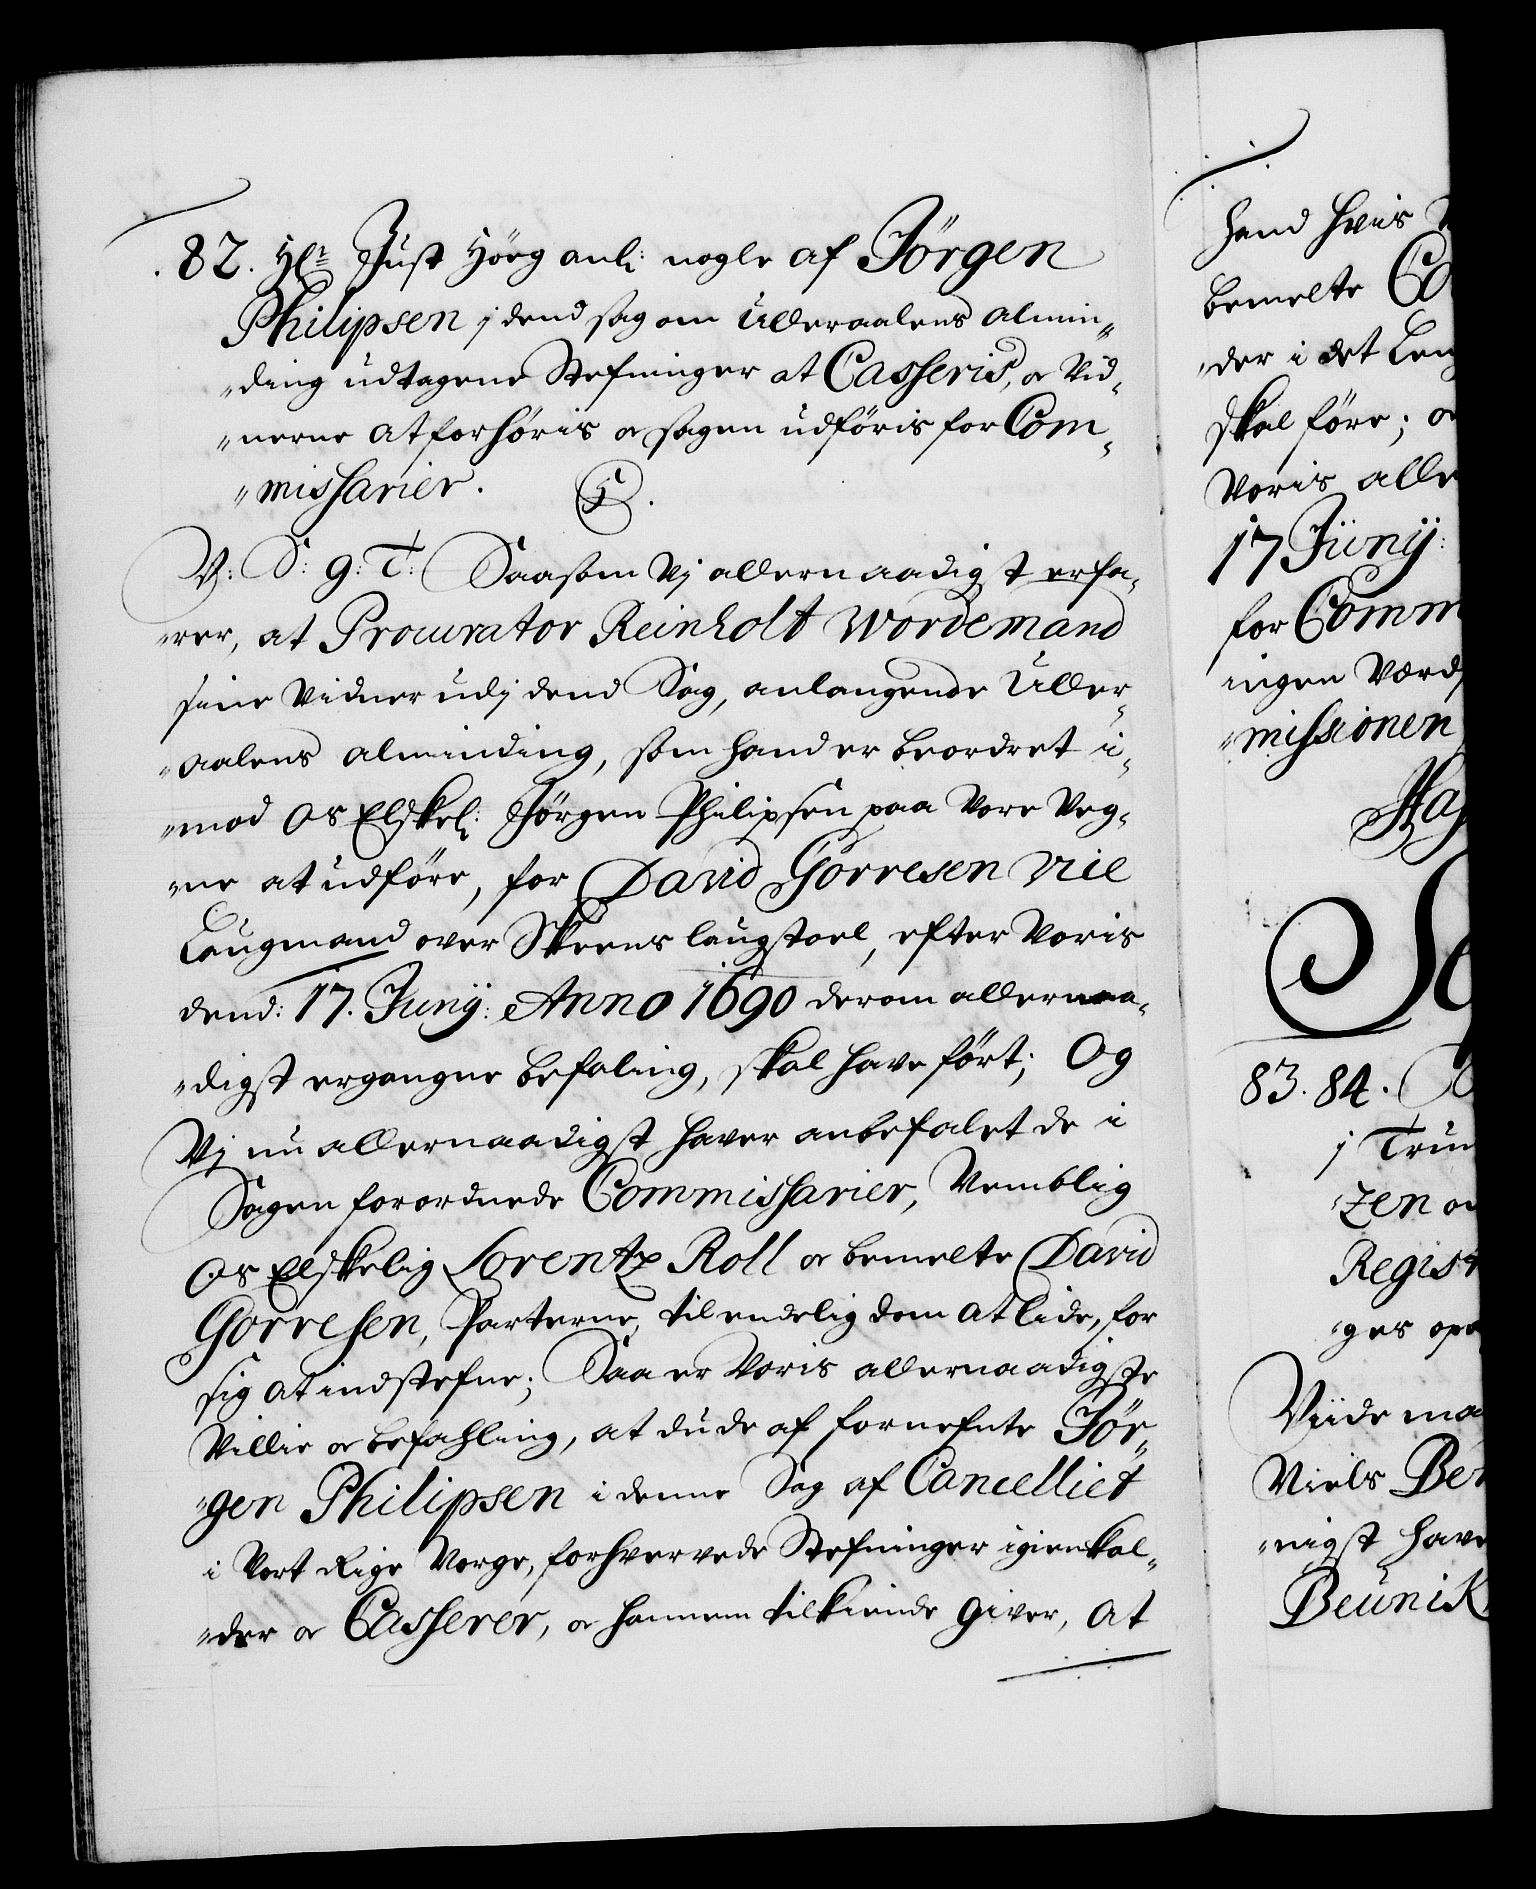 82. Hr: Just Höeg anl: nogle af Jörgen
Philipsen j dend sag om Ulleraalens Almin„
„ding udtagene Stefninger at Casseris, oc Vid„
„nerne at forhøris oc sagen udföris for Com„
„missarier.
V: S: g: T: Saasom Vj allernaadigst erfa„
„rer, at Procurator Reinholt Wordemand
sine Vidner udj dend Sag, anlangende Uller„
„aalens alminding, som hand er beordret i„
„mod Os Elskel: Jörgen Philipsen paa Vore Veg„
„ne at udföre, for David Görresen vice
Laugmand over Skeens laugstoel, efter Voris
dend: 17. Junÿ: Anno 1690 derom allernaa„
„digst ergangne befaling, skal have fört; Og
Vj nu allernaadigst haver anbefalet de i
Sagen forordnede Commissarier, Nemblig
Os Elskelig Lorentz Roll oc bemelte David
Görresen, Parterne, til endelig dom at lide, for
sig at indstefne; Saa er Voris allernaadigste
Villie oc befahling, at du de af fornefnte Jör„
„gen Philipsen i denne Sag af Cancelliet
i Vort Rige Norge, forhvervede Stefninger igienkal„
„der oc Casserer, oc hannem tilkiende giver, at
hand hvis
bemelte Co
„der i det Leng
skal före; oc
Voris alle
17 Junÿ:
for Comm
ingen Værds
„missionen
Haf
83. 84.
j Trun
„zen oc
Regist
„ges ope
Viide ma
Niels Ben
„nigst have
Beunik